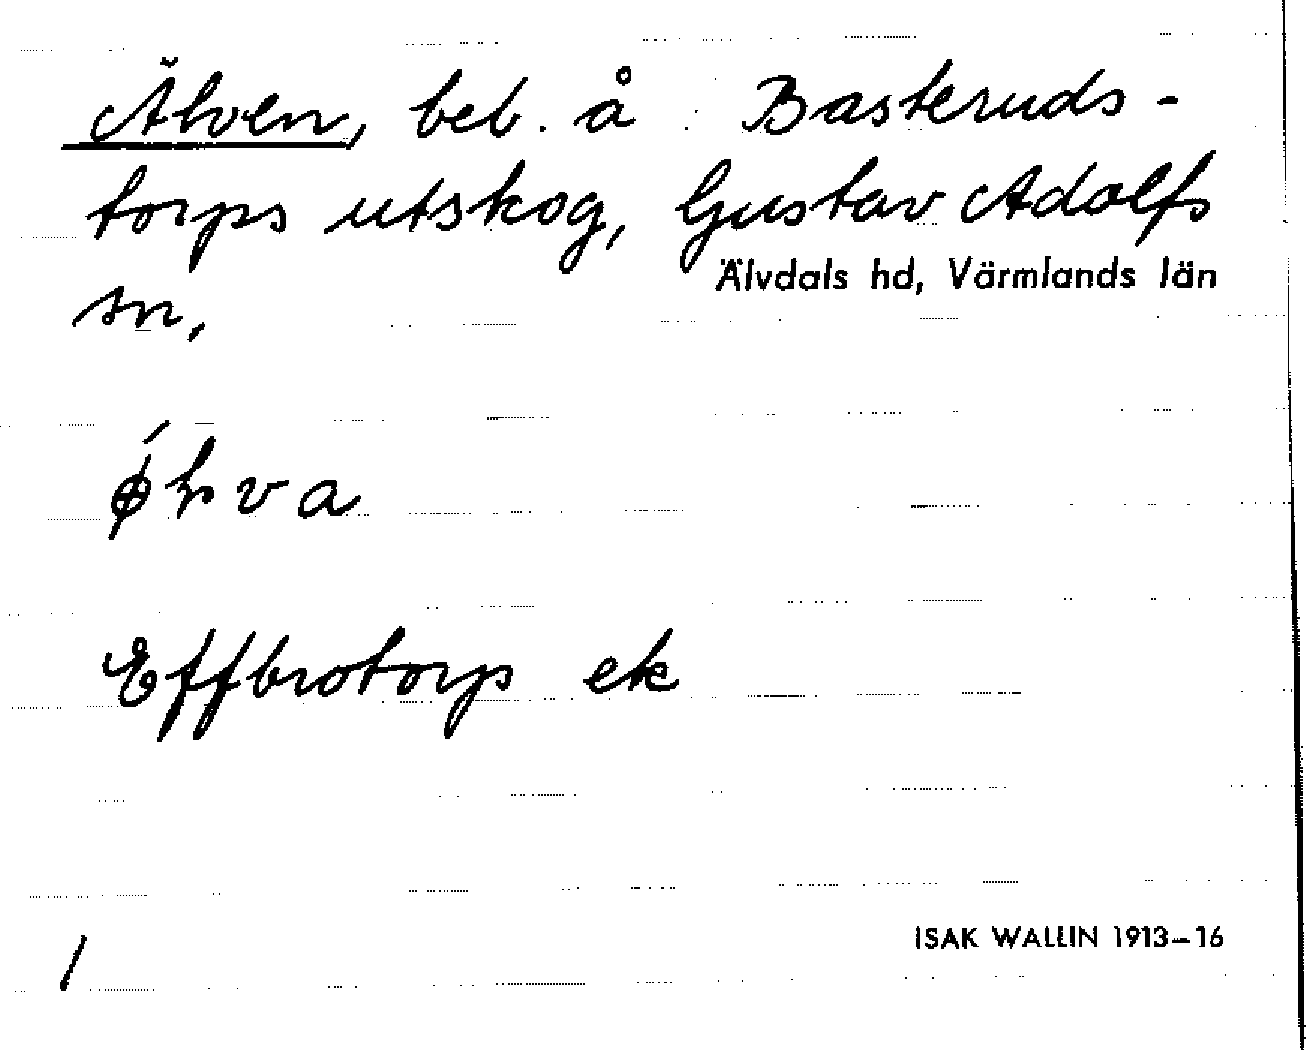 Älven, beb. å Basteruds-
torps utskog, Gustav Adolfs
Älvdals hd, Värmlands län
sn,
Effbrotorps ek
1
ISAK WALLIN 1913–16